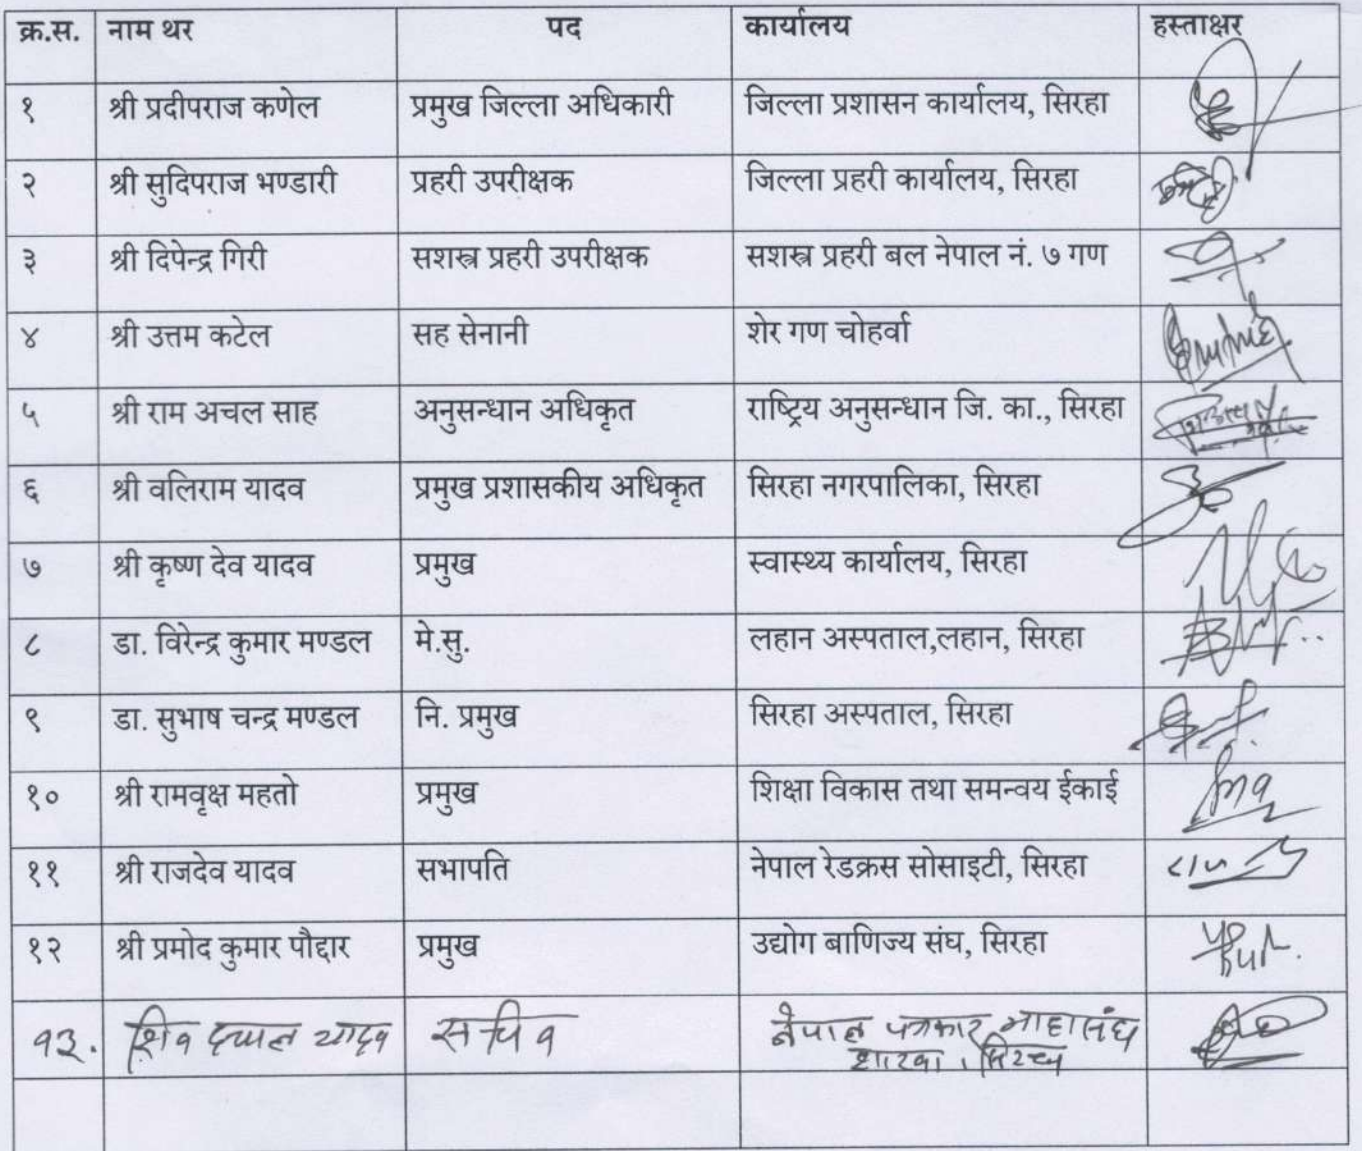 क्र.स. नाम थर पद कार्यालय हस्ताक्षर
१ श्री प्रदीपराज कणेल प्रमुख जिल्ला अधिकारी जिल्ला प्रशासन कार्यालय, सिरहा
२ श्री सुदिपराज भण्डारी प्रहरी उपरीक्षक जिल्ला प्रहरी कार्यालय, सिरहा
३ श्री दिपेन्द्र गिरी सशस्त्र प्रहरी उपरीक्षक सशस्त्र प्रहरी बल नेपाल नं. ७ गण
४ श्री उत्तम कटेल सह सेनानी शेर गण चोहर्वा
५ श्री राम अचल साह अनुसन्धान अधिकृत राष्ट्रिय अनुसन्धान जि. का., सिरहा
६ श्री वलिराम यादव प्रमुख प्रशासकीय अधिकृत सिरहा नगरपालिका, सिरहा
७ श्री कृष्ण देव यादव प्रमुख स्वास्थ्य कार्यालय, सिरहा
८ डा. विरेन्द्र कुमार मण्डल मे.सु. लहान अस्पताल,लहान, सिरहा
९ डा. सुभाष चन्द्र मण्डल नि. प्रमुख सिरहा अस्पताल, सिरहा
१० श्री रामवृक्ष महतो प्रमुख शिक्षा विकास तथा समन्वय ईकाई
११ श्री राजदेव यादव सभापति नेपाल रेडक्रस सोसाइटी, सिरहा
१२ श्री प्रमोद कुमार पौद्दार प्रमुख उद्योग बाणिज्य संघ, सिरहा
१३. शिव दयाल यादव सचिव नेपाल पत्रकार माहासंघ
शाखा, सिरहा